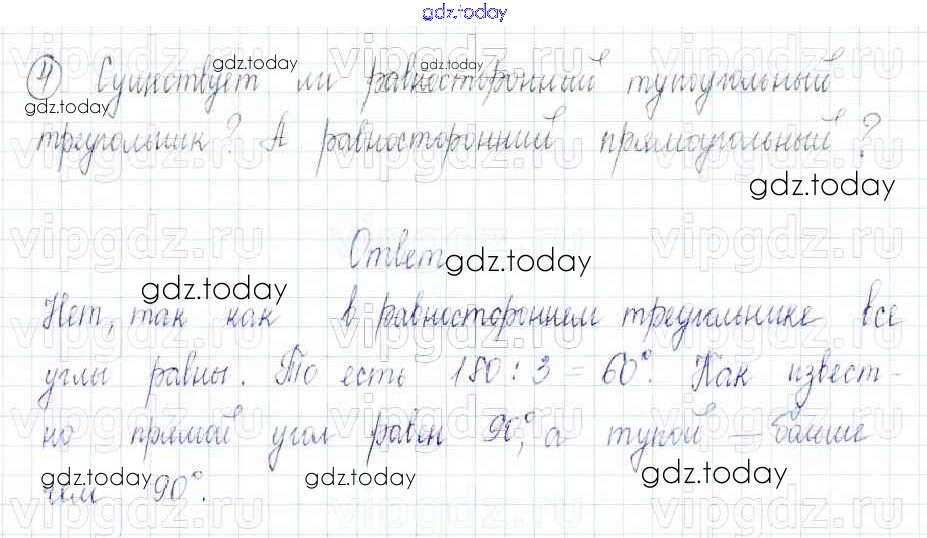 gdz.today
④ Существует ли равносторонний тупоугольный
треугольник? А равносторонний прямоугольный?
gdz.today
Ответ
gdz.today
Нет, так как в равностороннем треугольнике все
углы равны. То есть 180 : 3 = 60°. Как извест-
но прямой угол равен 90°, а тупой — больше
чем 90°.
gdz.today
gdz.today
gdz.today
gdz.today
gdz.today
gdz.today
vipgdz.ru